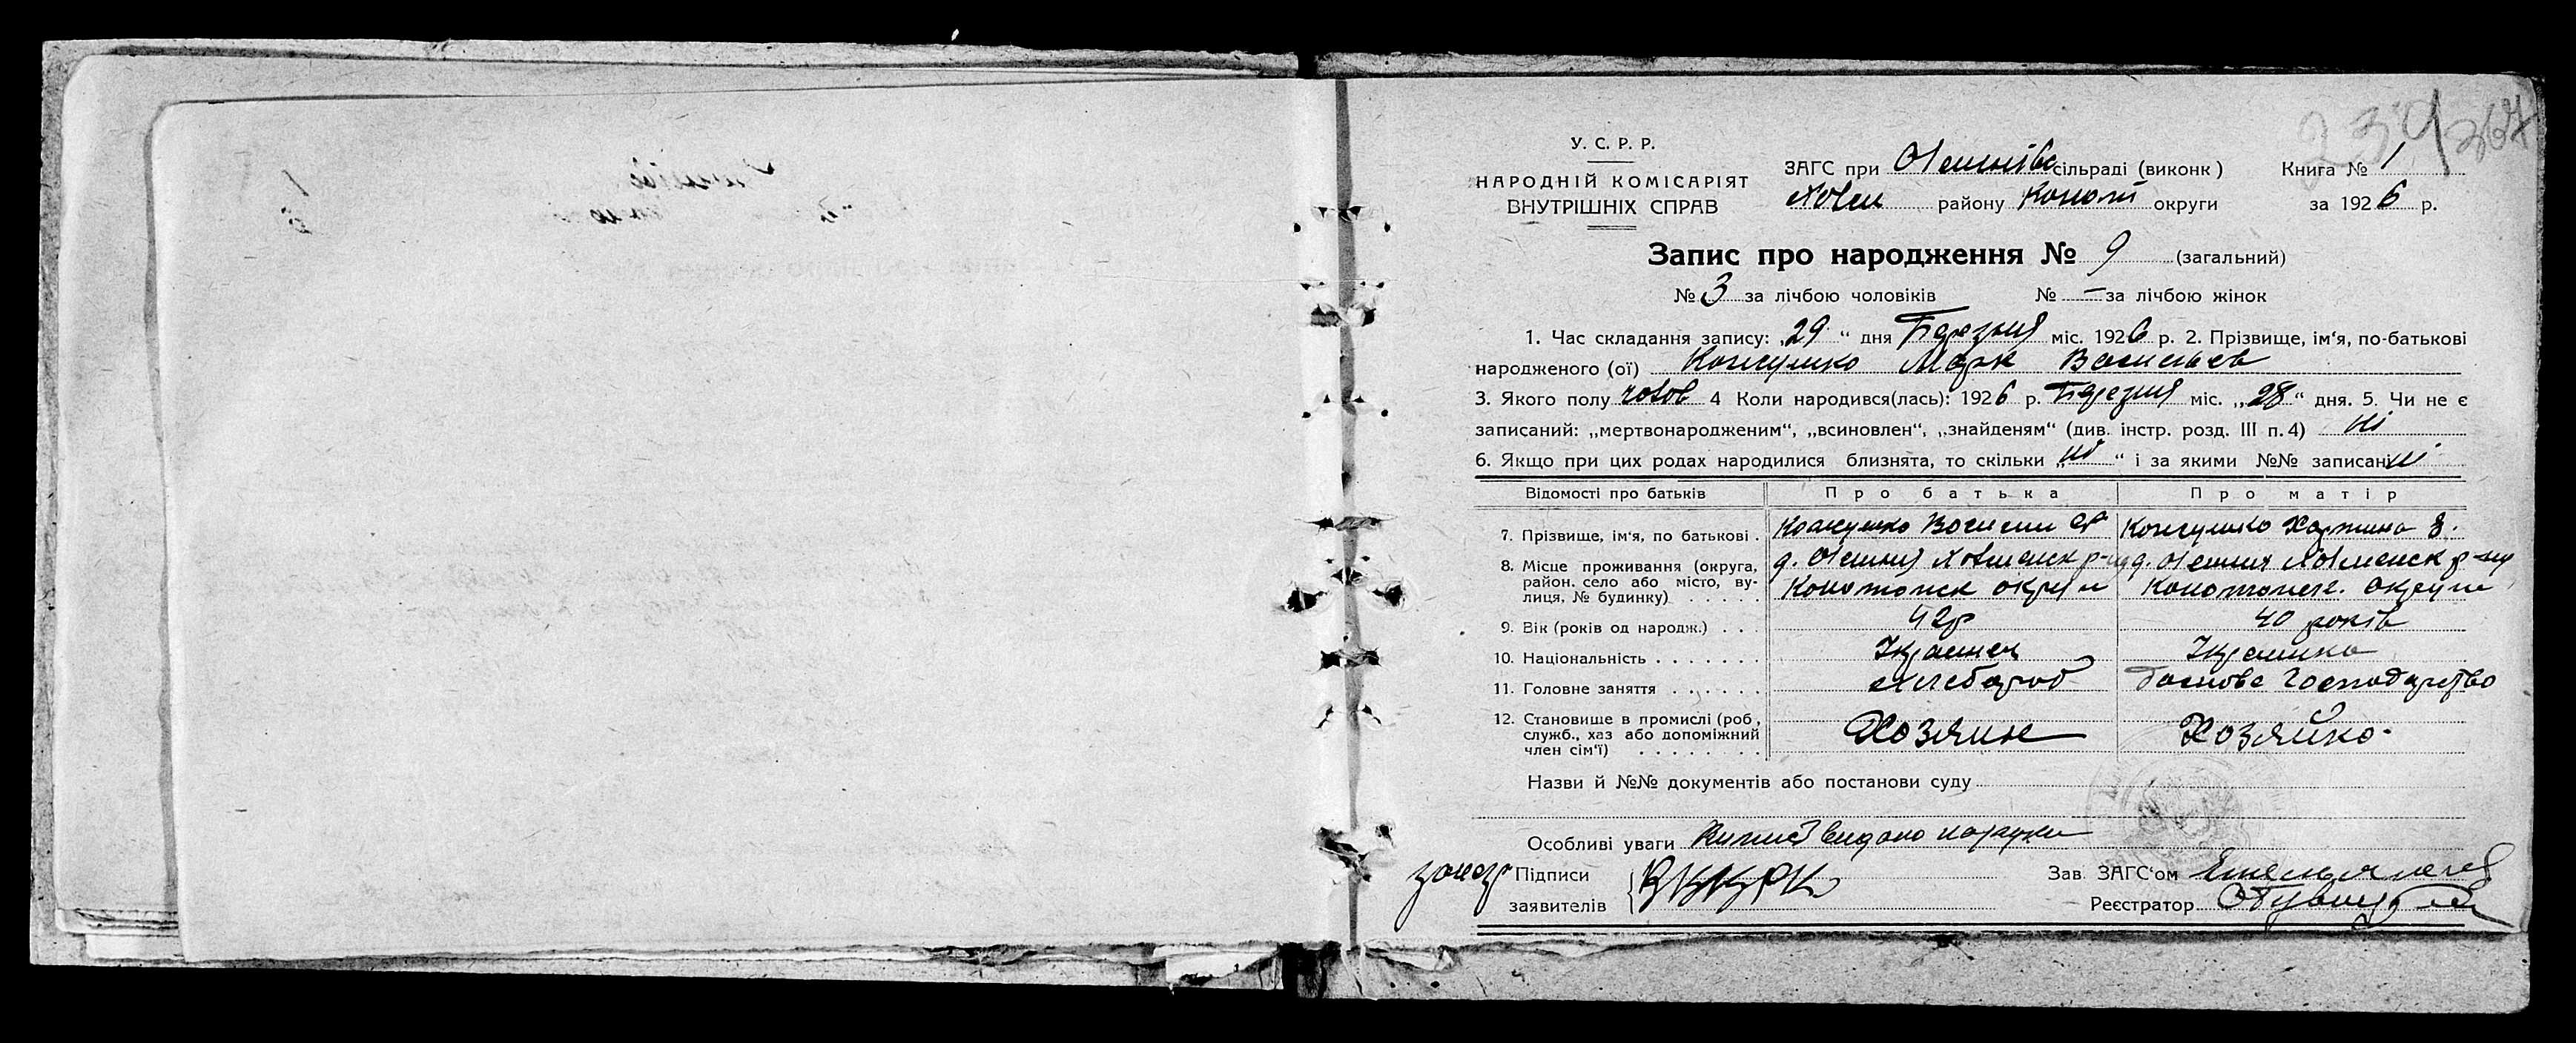 239 367
У. С. Р. Р.
НАРОДНІЙ КОМІСАРІЯТ
ВНУТРІШНІХ СПРАВ
ЗАГС при сільраді (виконк) Книга № 1
району Конот округи за 1926 р.
Запис про народження № 9 (загальний)
№ 3 за лічбою чоловіків № – за лічбою жінок
1. Час складання запису: „29“ дня Березня міс. 1926 р. 2. Прізвище, ім‘я, по-батькові
народженого (ої) Кожушко Марк Васильев
3. Якого полу чолов 4 Коли народився(лась): 1926 р. Березня міс. „28“ дня. 5. Чи не є
записаний: „мертвонародженим“, „всиновлен“, „знайденям“ (див. інстр. розд. III п. 4) ні
6. Якщо при цих родах народилися близнята, то скільки „ні“ і за якими №№ записані ні
Відомості про батьків Про батька Про матір
7. Прізвище, ім‘я, по батькові . Кожушко Кожушко
8. Місце проживання (округа,
район. село або місто, ву-
лиця, № будинку) Конотопск округи Конотопск. округи
9. Вік (років од народж.) . . . 42р 40 років
10. Національність Українец Українка
11. Головне заняття хлебороб Господарство
12. Становище в промислі (роб,
служб., хаз або допоміжний
член сім‘ї) Хозяин Хозяйка.
Назви й №№ документів або постанови суду
Особливі уваги Випис видано на руки
Підписи Зав. ЗАГС‘ом
заявителів Реєстратор